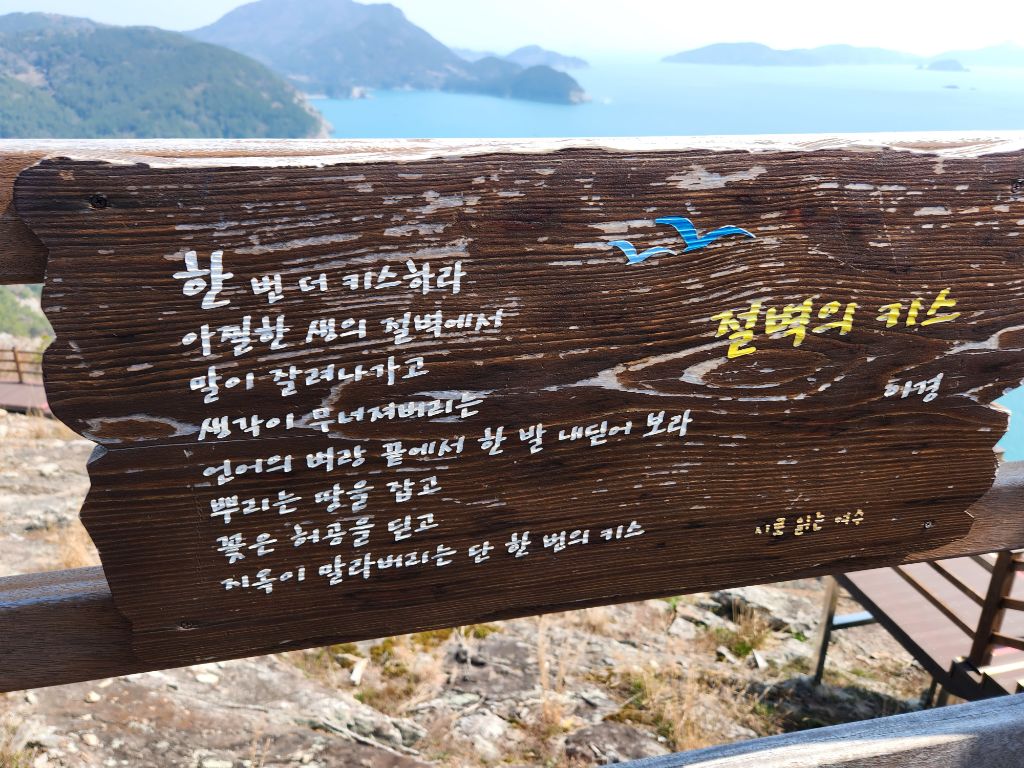 절벽의 키스
하경
한 번 더 키스하라
아찔한 생의 절벽에서
말이 잘려나가고
생각이 무너져버리는
언어의 벼랑 끝에서 한 발 내딛어 보라
뿌리는 땅을 잡고
꽃은 허공을 딛고
지옥이 말라버리는 단 한 번의 키스
시로 읽는 여수